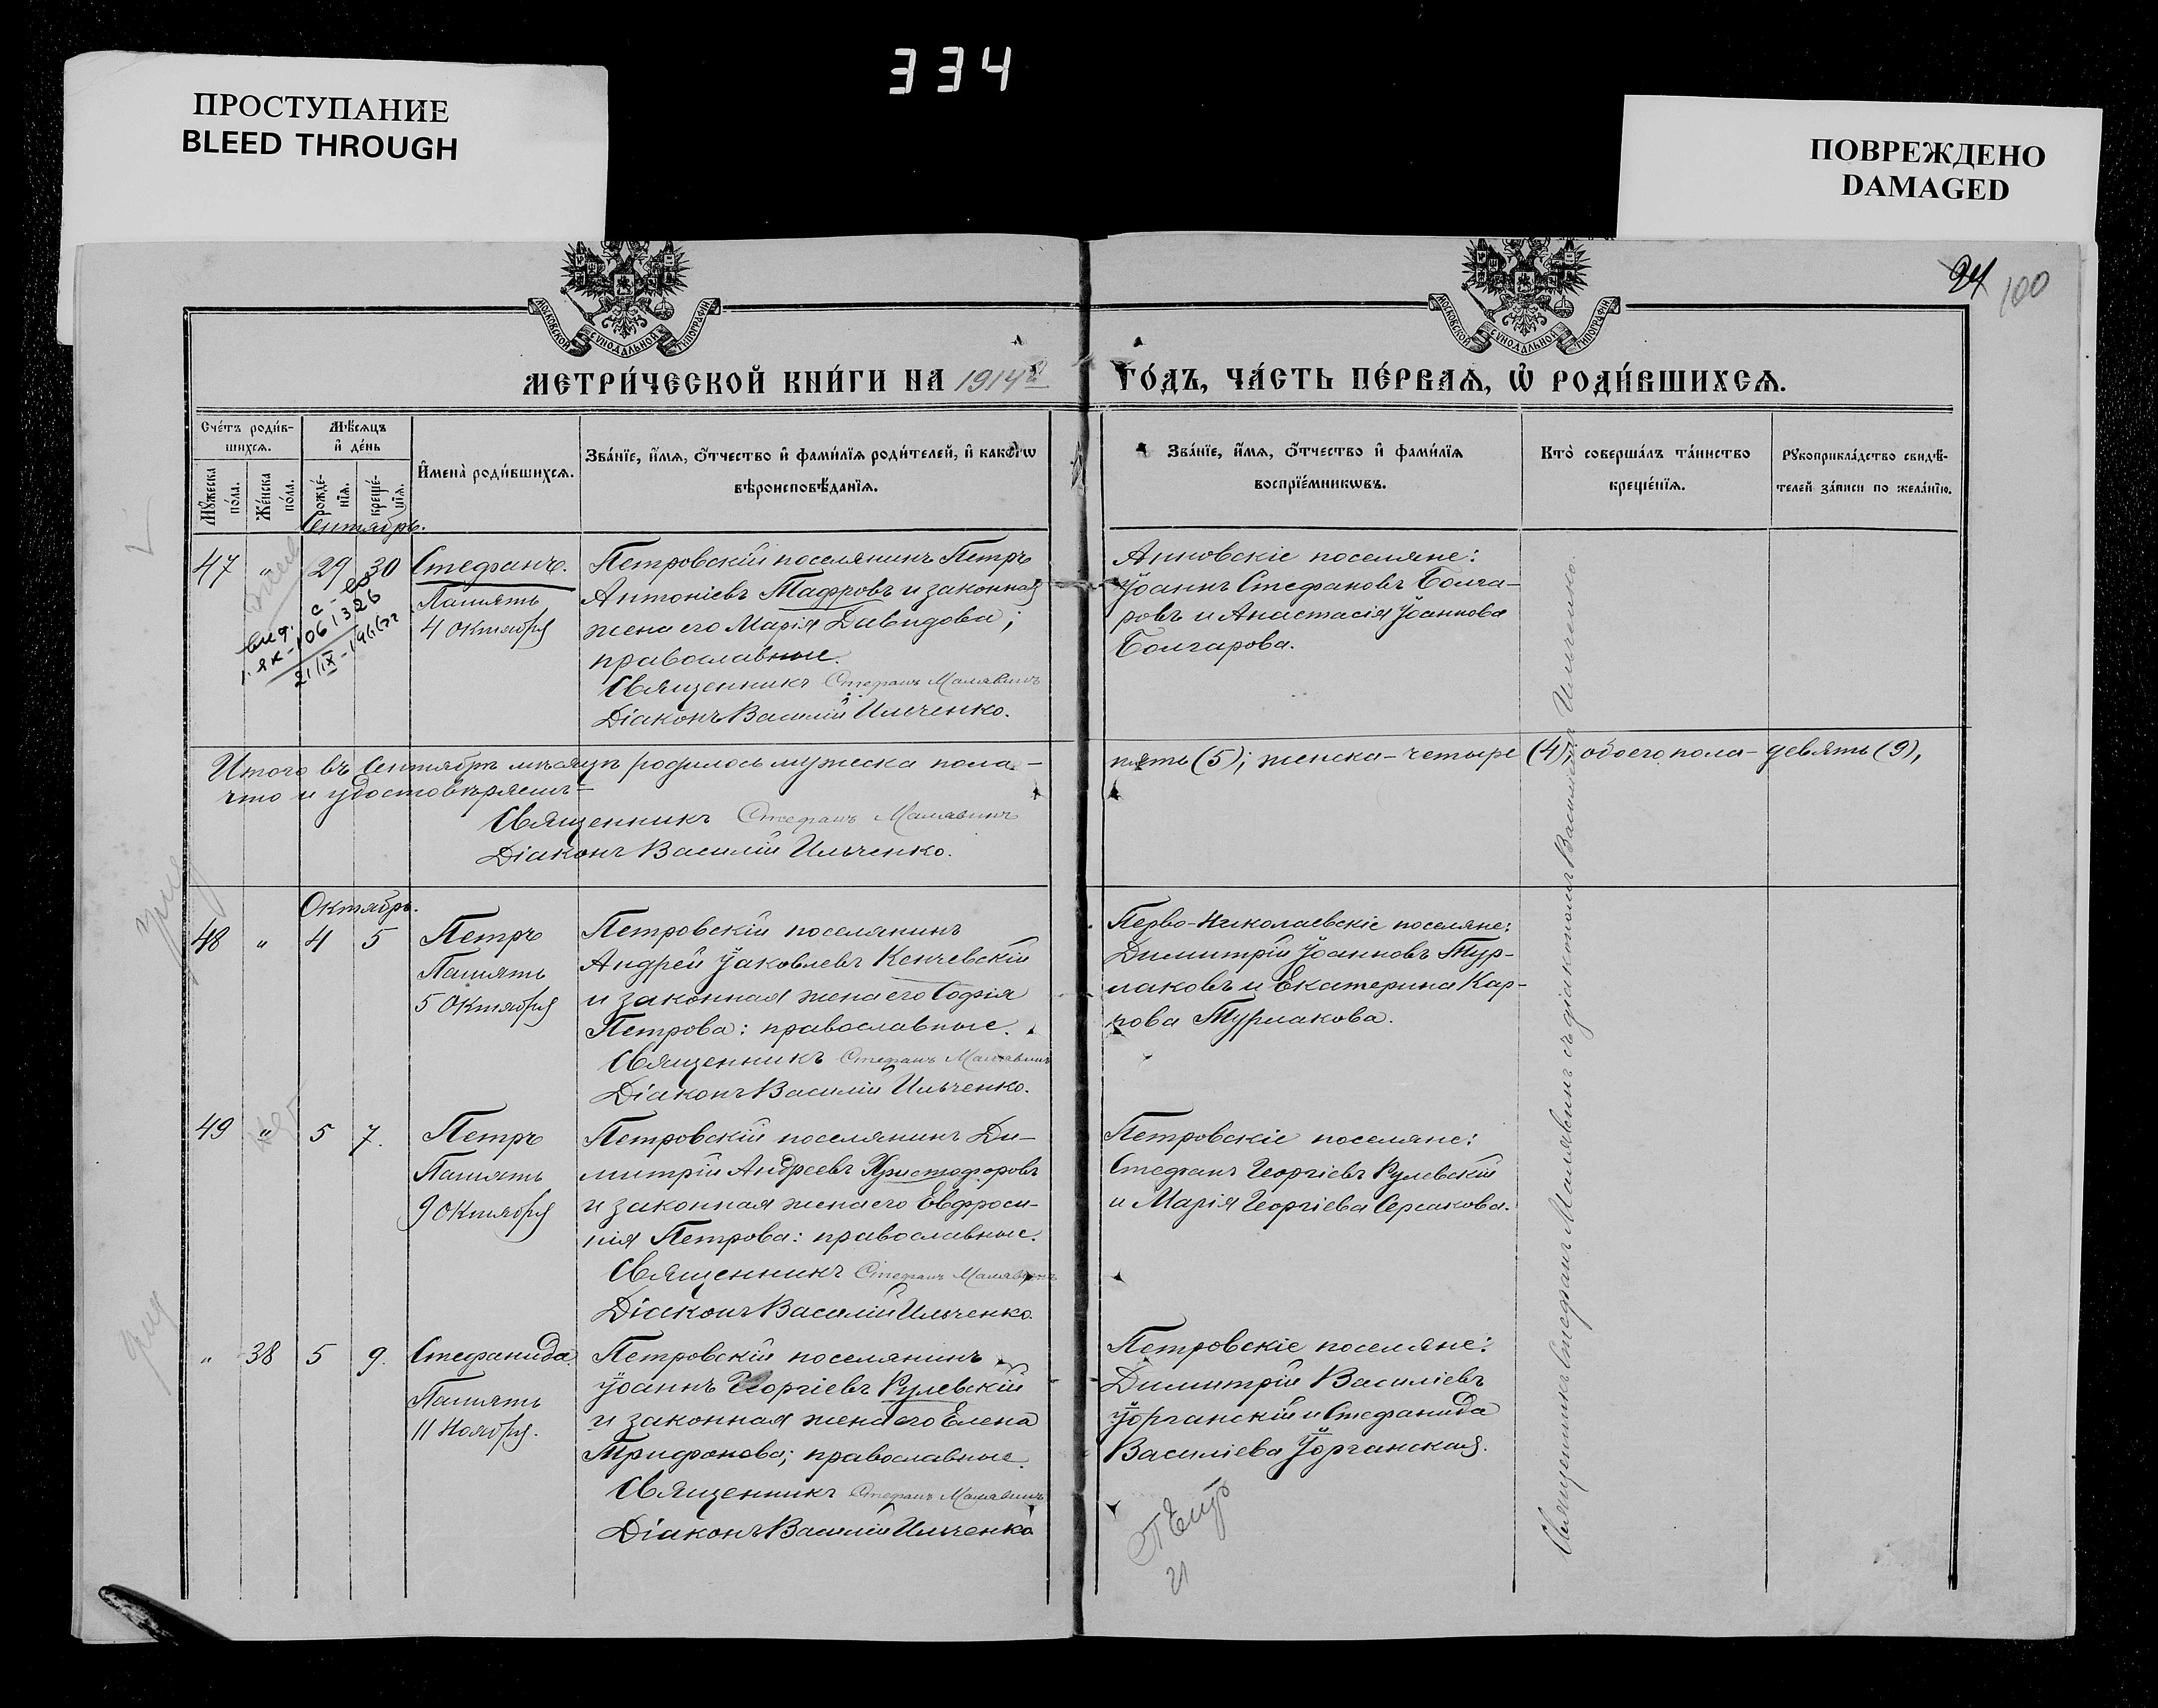 334
ПРОСТУПАНИЕ
BLEED THROUGH
ПОВРЕЖДЕНО
DAMAGED
94 100
МОСКОВСКОЙ СѴНОДАЛЬНОЙ ТИПОГРАФІИ
МОСКОВСКОЙ СѴНОДАЛЬНОЙ ТИПОГРАФІИ
МЕТРИ́ЧЕСКОЙ КНИ́ГИ НА 1914й ГО́ДЪ, ЧА́СТЬ ПЕ́РВАѦ, Ѡ РОДИ́ВШИХСѦ.
Сче́тъ роди́в-
шихсѧ.
Мꙋ́жеска
по́ла.
Же́нска
по́ла.
Мѣ́сѧцъ
и де́нь
рожде́-
нїѧ.
креще́-
нїѧ.
Имена̀ роди́вшихсѧ.
Зва́нїе, и́мѧ, о́тчество и фами́лїѧ роди́телей, и како́гѡ
вѣроисповѣ́данїѧ.
Зва́нїе, и́мѧ, о́тчество и фами́лїѧ
воспрїе́мникѡвъ.
Кто̀ соверша́лъ та́инство
креще́нїѧ.
Рꙋкоприкла́дство свидѣ́-
телей за́писи по жела́нїю.
Сентябрь.
47 " 29 30
Стефанъ.
Память
4 Октября
Петровскій поселянинъ Петръ
Антоніевъ Тафровъ и законная
жена его Марія Давидова;
православные.
Священникъ Стефанъ Малявинъ
Діаконъ Василій Ильченко.
Анновскіе поселяне:
Іоаннъ Стефановъ Болга-
ровъ и Анастасія Іоаннова
Болгарова.
Итого въ Сентябрѣ мѣсяцѣ родилось мужеска пола - пять (5); женска - четыре (4), обоего пола - девять (9),
что и удостовѣряемъ -
Священникъ Стефанъ Малявинъ
Діаконъ Василій Ильченко.
Октябрь.
48 " 4 5
Петръ
Память
5 Октября
Петровскій поселянинъ
Андрей Іаковлевъ Кенчевскій
и законная жена его Софія
Петрова: православные.
Священникъ Стефанъ Малявинъ
Діаконъ Василій Ильченко.
Перво-Николаевскіе поселяне:
Димитрій Іоанновъ Тур-
лаковъ и Екатерина Кар-
пова Турлакова.
49 " 5 7.
Петръ
Память
9 Октября
Петровскій поселянинъ Ди-
митрій Андреевъ Христофоровъ
и законная жена его Евфроси-
нія Петрова: православные.
Священникъ Стефанъ Малявинъ
Діаконъ Василій Ильченко
Петровскіе поселяне:
Стефанъ Георгіевъ Рулевскій
и Марія Георгіева Серсакова.
" 38 5 9.
Стефанида
Память
11 Ноября.
Петровскій поселянинъ
Іоаннъ Георгіевъ Рулевскій
и законная жена его Елена
Трифонова; православные.
Священникъ Стефанъ Малявинъ
Діаконъ Василій Ильченко
Петровскіе поселяне:
Димитрій Василіевъ
Іорганскій и Стефанида
Василіева Іорганская.
Священникъ Стефанъ Малявинъ съ діакономъ Василіемъ Ильченко.